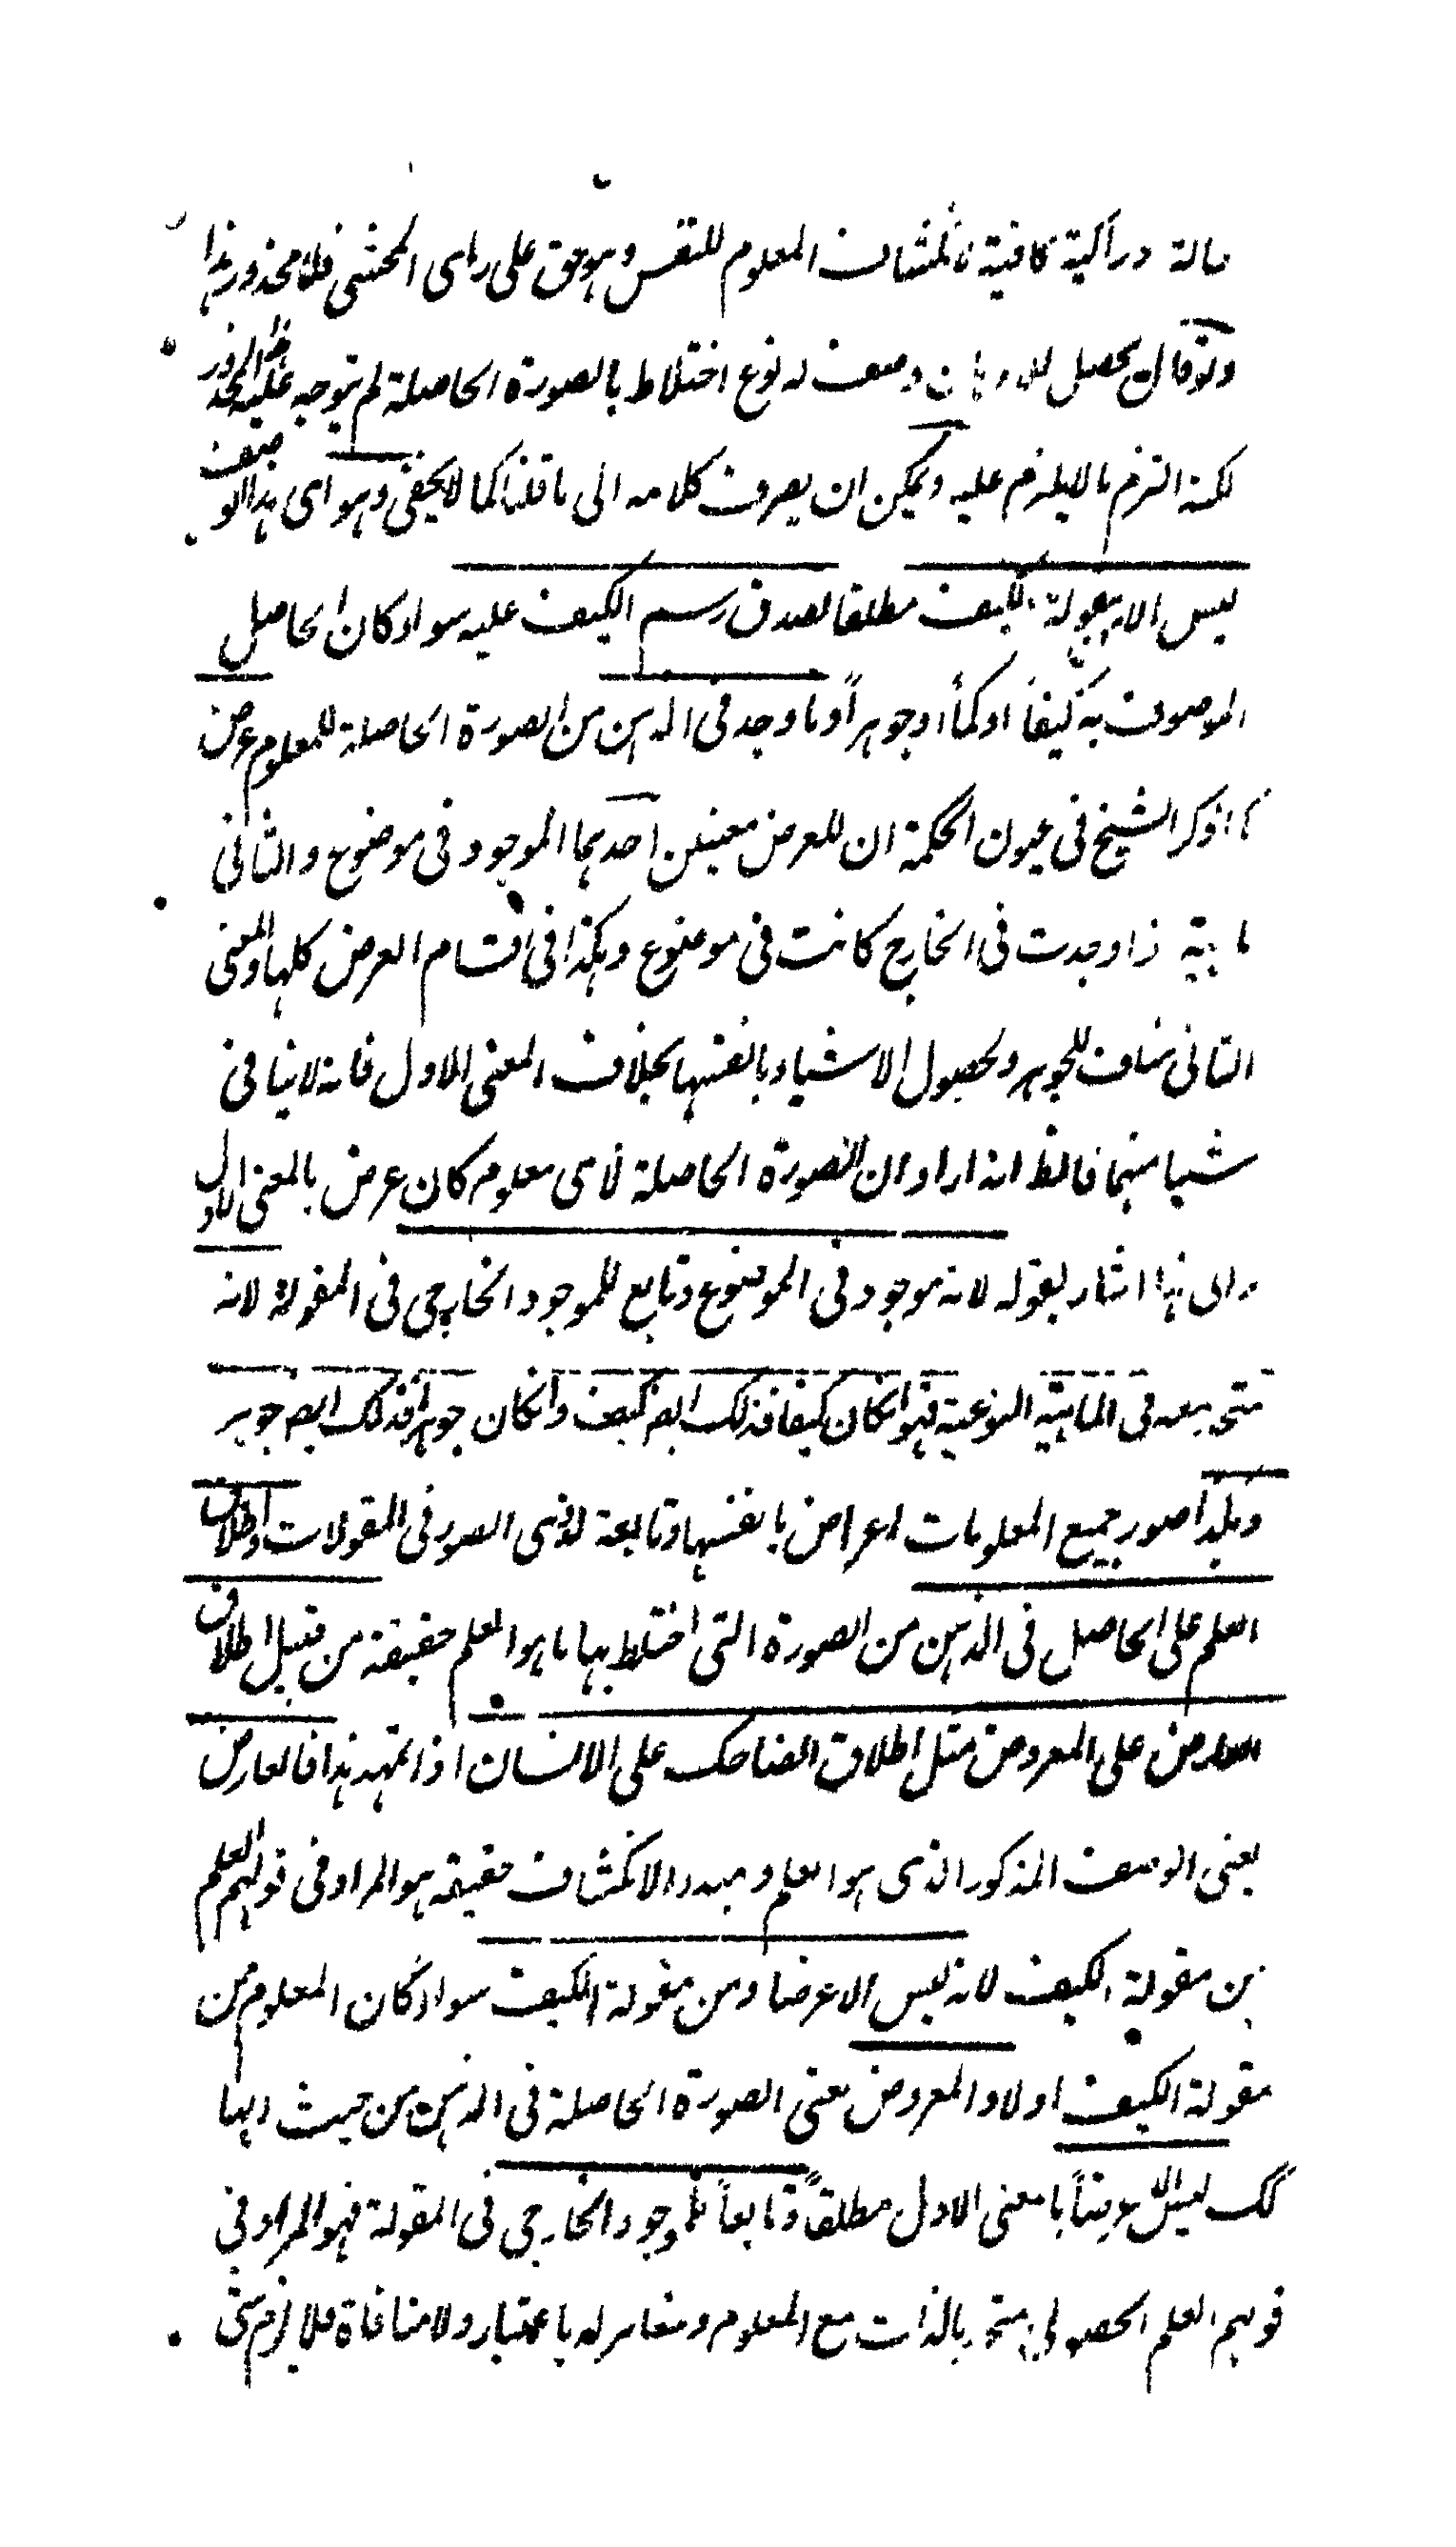 حالة دراكية كافية لانكشاف المعلوم للنفس وهو حق على رأى المحشى فلا محذور هذا
ولو قال يحصل للاذهان وصف له نوع اختلاط بالصورة الحاصلة لم يتوجه عليه المحذور
لكنه التزم ما لا يلزم عليه ويمكن ان يصرف كلامه الى ما قلنا كما لا يخفى وهو اى هذا الوصف
ليس الا مقولة الكيف مطلقا لصدق رسم الكيف عليه سواء كان الحاصل
الموصوف به كيفاً او كماً او جوهراً وما وجد فى الذهن من الصورة الحاصلة للمعلوم عرض
لما ذكر الشيخ فى عيون الحكمة ان للعرض معنيين احدهما الموجود فى موضوع والثانى
ماهية اذا وجدت فى الخارج كانت فى موضوع وهكذا فى اقسام العرض كلها والمعنى
الثانى مناف للجوهر ولحصول الاشياء بانفسها بخلاف المعنى الاول فانه لا ينافى
شيا منهما فالظ انه اراد ان الصورة الحاصلة لاى معلوم كان عرض بالمعنى الاول
والى هذا اشار بقوله لانه موجود فى الموضوع وتابع للموجود الخارجى فى المقولة لانه
متحد معه فى الماهية النوعية فهو انكان كيفا فذلك ايض كيف وانكان جوهرا فذلك ايض جوهر
وهكذا صور جميع المعلومات اعراض بانفسها وتابعة لذى الصور فى المقولات واطلاق
العلم على الحاصل فى الذهن من الصورة التى اختلط بها ما هو العلم حقيقة من قبيل اطلاق
العارض على المعروض مثل اطلاق الضاحك على الانسان اذا تمهد هذا فالعارض
يعنى الوصف المذكور الذى هو العلم ومبدء الانكشاف حقيقة هو المراد فى قولهم العلم
من مقولة الكيف لانه ليس الا عرضا ومن مقولة الكيف سواء كان المعلوم من
مقولة الكيف اولا والمعروض يعنى الصورة الحاصلة فى الذهن من حيث انها
كك ليس الا عرضاً بالمعنى الاول مطلقاً وتابعاً للموجود الخارجى فى المقولة فهو المراد فى
قولهم العلم الحصولى متحد بالذات مع المعلوم ومغاير له باعتبار ولا منافاة فلا يلزم شى